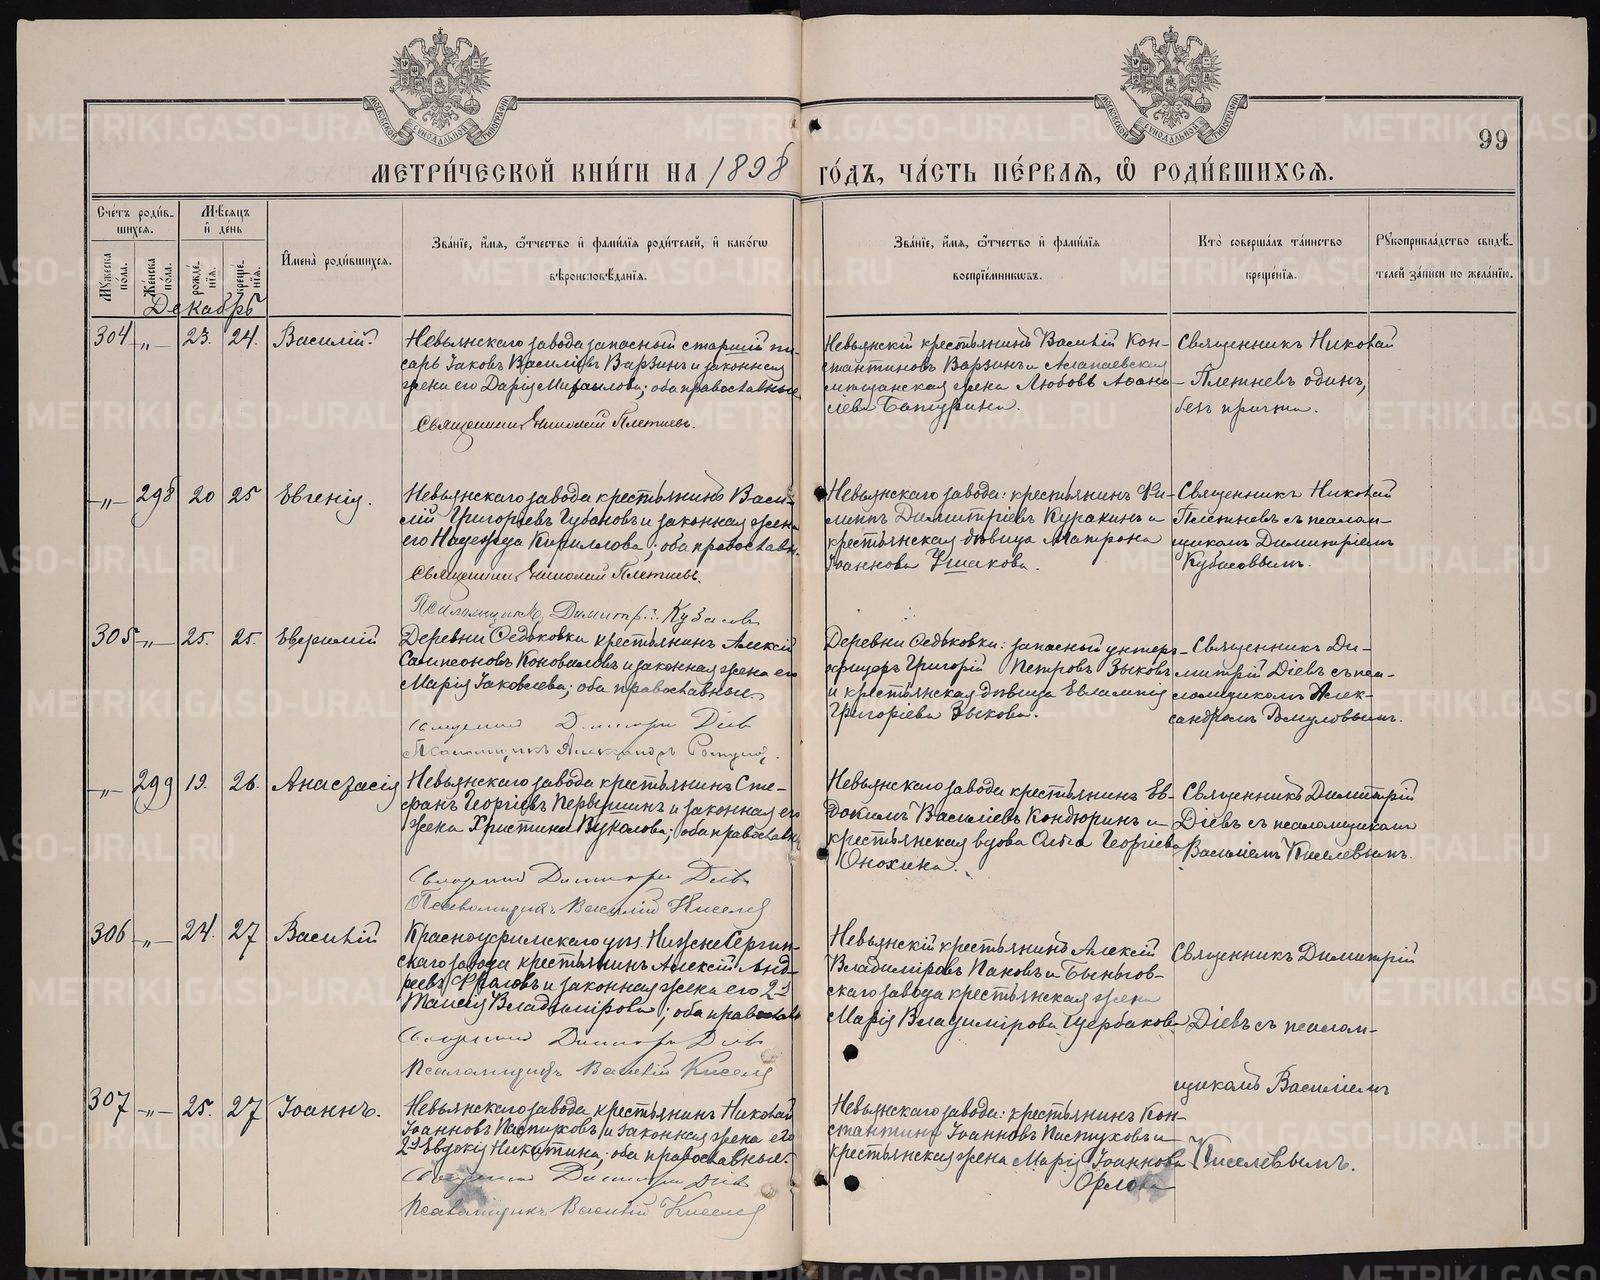 МОСКОВСКОЙ СѴНОДАЛЬНОЙ ТИПОГРАФІИ
МОСКОВСКОЙ СѴНОДАЛЬНОЙ ТИПОГРАФІИ
99
МЕТРИ́ЧЕСКОЙ КНИ́ГИ НА 1898 ГО́ДЪ, ЧА́СТЬ ПЕ́РВАѦ, Ѽ РОДИ́ВШИХСѦ.
Сче́тъ роди́в-
шихсѧ.
Мѣ́сѧцъ
и҆ де́нь
Мꙋ́жеска по́ла.
Же́нска по́ла.
рожде́-
нїѧ.
креще́-
нїѧ.
И҆мена̀ роди́вшихсѧ.
Зва́нїе, и҆́мѧ, ѻ҆́тчество и҆ фами́лїѧ роди́телей, и҆ како́гѡ
вѣроисповѣ́данїѧ.
Зва́нїе, и҆́мѧ, ѻ҆́тчество и҆ фами́лїѧ
воспрїе́мникѡвъ.
Кто̀ соверша́лъ та́инство
креще́нїѧ.
Рꙋкоприкла́дство свидѣ́-
телей за́писи по жела́нїю.
Декабрь
304 „ 23. 24. Василій.
Невьянскаго завода запасный старшій пи-
сарь Іаковъ Василіевъ Варзинъ и законная
жена его Дарія Михаилова; оба православные
Священникъ Николай Плетневъ.
Невьянскій крестьянинъ Василій Кон-
стантиновъ Варзинъ и Алапаевская
мѣщанская жена Любовь Аѳана-
сіева Батурина.
Священникъ Николай
Плетневъ одинъ,
безъ причта.
„ 298 20 25 Евгенія.
Невьянскаго завода крестьянинъ Васи-
лій Григоріевъ Губановъ и законная жена
его Надежда Кириллова; оба православн.
Священникъ Николай Плетневъ.
Псаломщикъ Димитрій Кубасовъ
Невьянскаго завода: крестьянинъ Фи-
липпъ Димитріевъ Куракинъ и
крестьянская дѣвица Матрона
Іоаннова Ушакова.
Священникъ Николай
Плетневъ съ псалом-
щикомъ Димитріемъ
Кубасовымъ.
305 „ 25. 25. Евѳимій
Деревни Ѳедьковки крестьянинъ Алексій
Сампсоновъ Коноваловъ и законная жена его
Марія Іаковлева; оба православные.
Священникъ Димитрій Діевъ
Псаломщикъ Александръ Ромулов.
Деревни Ѳедьковки: запасный унтеръ-
офицеръ Григорій Петровъ Зыковъ
и крестьянская дѣвица Евлампія
Григоріева Зыкова.
Священникъ Ди-
митрій Діевъ съ пса-
ломщикомъ Алек-
сандромъ Ромуловымъ.
„ 299 19. 26. Анастасія
Невьянскаго завода крестьянинъ Сте-
фанъ Георгіевъ Первушинъ и законная его
жена Христина Вуколова; оба православн.
Священникъ Димитрій Діевъ
Псаломщикъ Василій Киселев
Невьянскаго завода крестьянинъ Ев-
докимъ Василіевъ Кондюринъ и
крестьянская вдова Ольга Георгіева
Онохина.
Священникъ Димитрій
Діевъ съ псаломщикомъ
Василіемъ Киселевымъ.
306 „ 24. 27 Василій
Красноуфимскаго уѣз. НижнеСергин-
скаго завода крестьянинъ Алексій Анд-
реевъ и законная жена его 2-я
Таисія Владимірова; оба православн
Священникъ Димитрій Діевъ
Псаломщикъ Василій Киселев
Невьянскій крестьянинъ Алексій
Владиміровъ Пановъ и Быньгов-
скаго завода крестьянская жена
Марія Владимірова Щербакова
Священникъ Димитрій
Діевъ съ псалом-
щикомъ Василіемъ
Киселевымъ.
307 „ 25. 27 Іоаннъ.
Невьянскаго завода крестьянинъ Николай
Іоанновъ Пастуховъ и законная жена его
2-я Евдокія Никитина; оба православные.
Священникъ Димитрій Діевъ
Псаломщикъ Василій Киселев
Невьянскаго завода: крестьянинъ Кон-
стантинъ Іоанновъ Пастуховъ и
крестьянская жена Марія Іоаннова
Орлова
METRIKI.GASO-URAL.RU